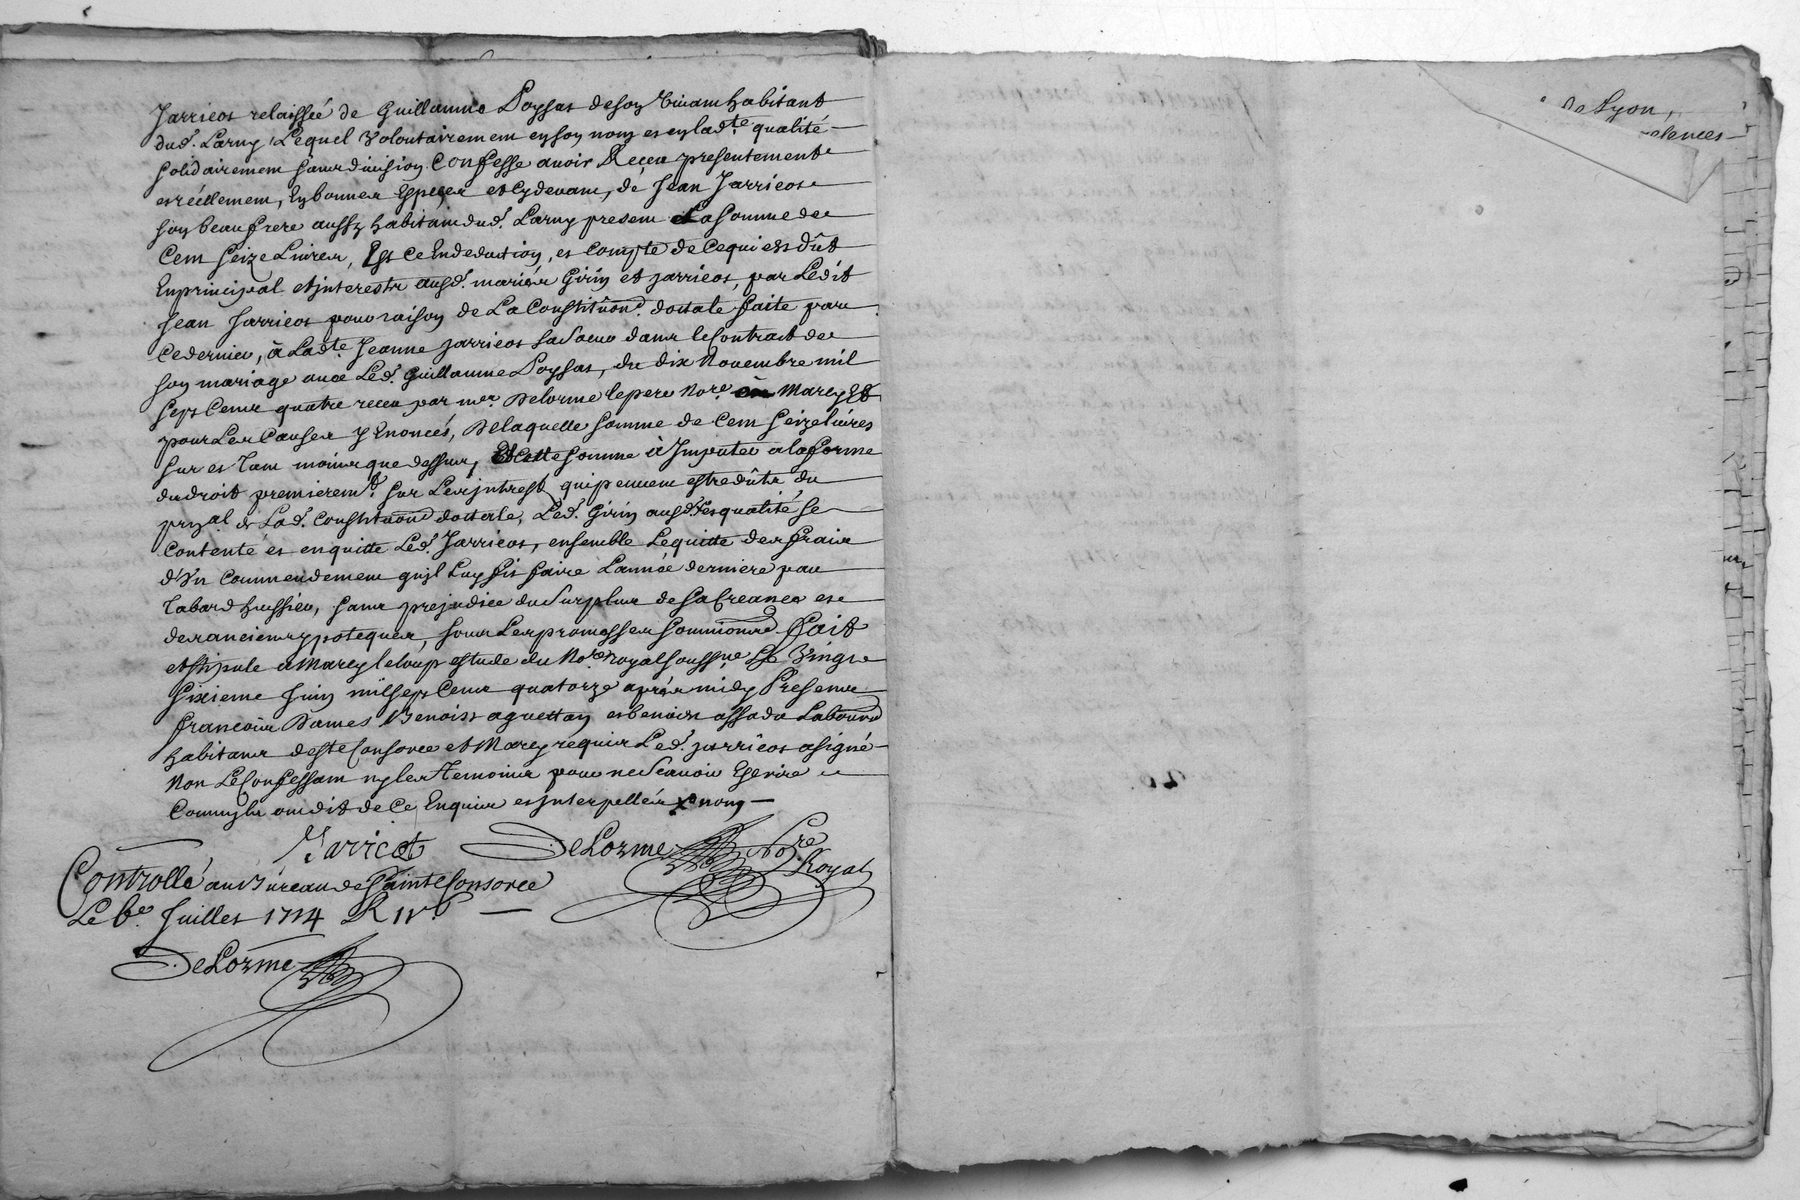 Jarricos relaissée de Guillaume Poysat de son vivant habitant
dud. Larny Lequel Volontairement en son nom et en lad.te qualité
solidairement sans division Confesse avoir Receu presentement
et réellement, En bonnes Especes et Cy devant, de Jean Jarricos
son beau frere aussy habitant dud. Larny present La somme de
Cent seize Livres, Et Ce En deduction, et Compte de Ce qui est dût
En principal et interestz ausd. mariés Girin et jarricos, par Ledit
Jean Jarricos pour raison de La Constitution dottale faite par
Ce dernier, à Lad.te Jeanne jarricos sa soeur dans le Contract de
son mariage avec Led. Guillaume Poysat, du dix Novembre mil
sept Cens quatre receu par m.er Delorme le pere No.re à Marcy Et
pour Les Causes y Enoncés, De laquelle somme de Cent seize livres
sur et tant moins que dessus, Et Cette somme à Imputer a la forme
du droit premierem.t sur Les jntrestz qui peuvent estre dûtz du
prn.al de Lad. Constitution dottale, Led. Girin ausd. es qualité se
Contente et en quitte Led. Jarricos, ensemble Le quitte des frais
d'Vn Commendement qu'jl Luy fit faire L'année derniere par
Tabard huissier, sans prejudice du surplus de sa Creance et
des anciens ypoteques, sous Les promesses soumissions Fait
et stipulé a Marcy le loup estude du No.re royal soussig.ne Le Vingt
sixieme Juin mil sept Cens quatorze aprés midy Presens
francois Dames Benoist aguettan et benoist assada Laboureurs
habitans de Ste Consorce et Marcy requis Led. jarricos a signé
Non Le Confessant ny les temoins pour ne scavoir Escrire
Comm'jls ont dit de Ce Enquis et jnterpellés x nom
Jarricot DeLorme No.re
Royal
Controllé au Bureau de Sainte Consorce
Le 6.e Juillet 1714 R
DeLorme
de Lyon,